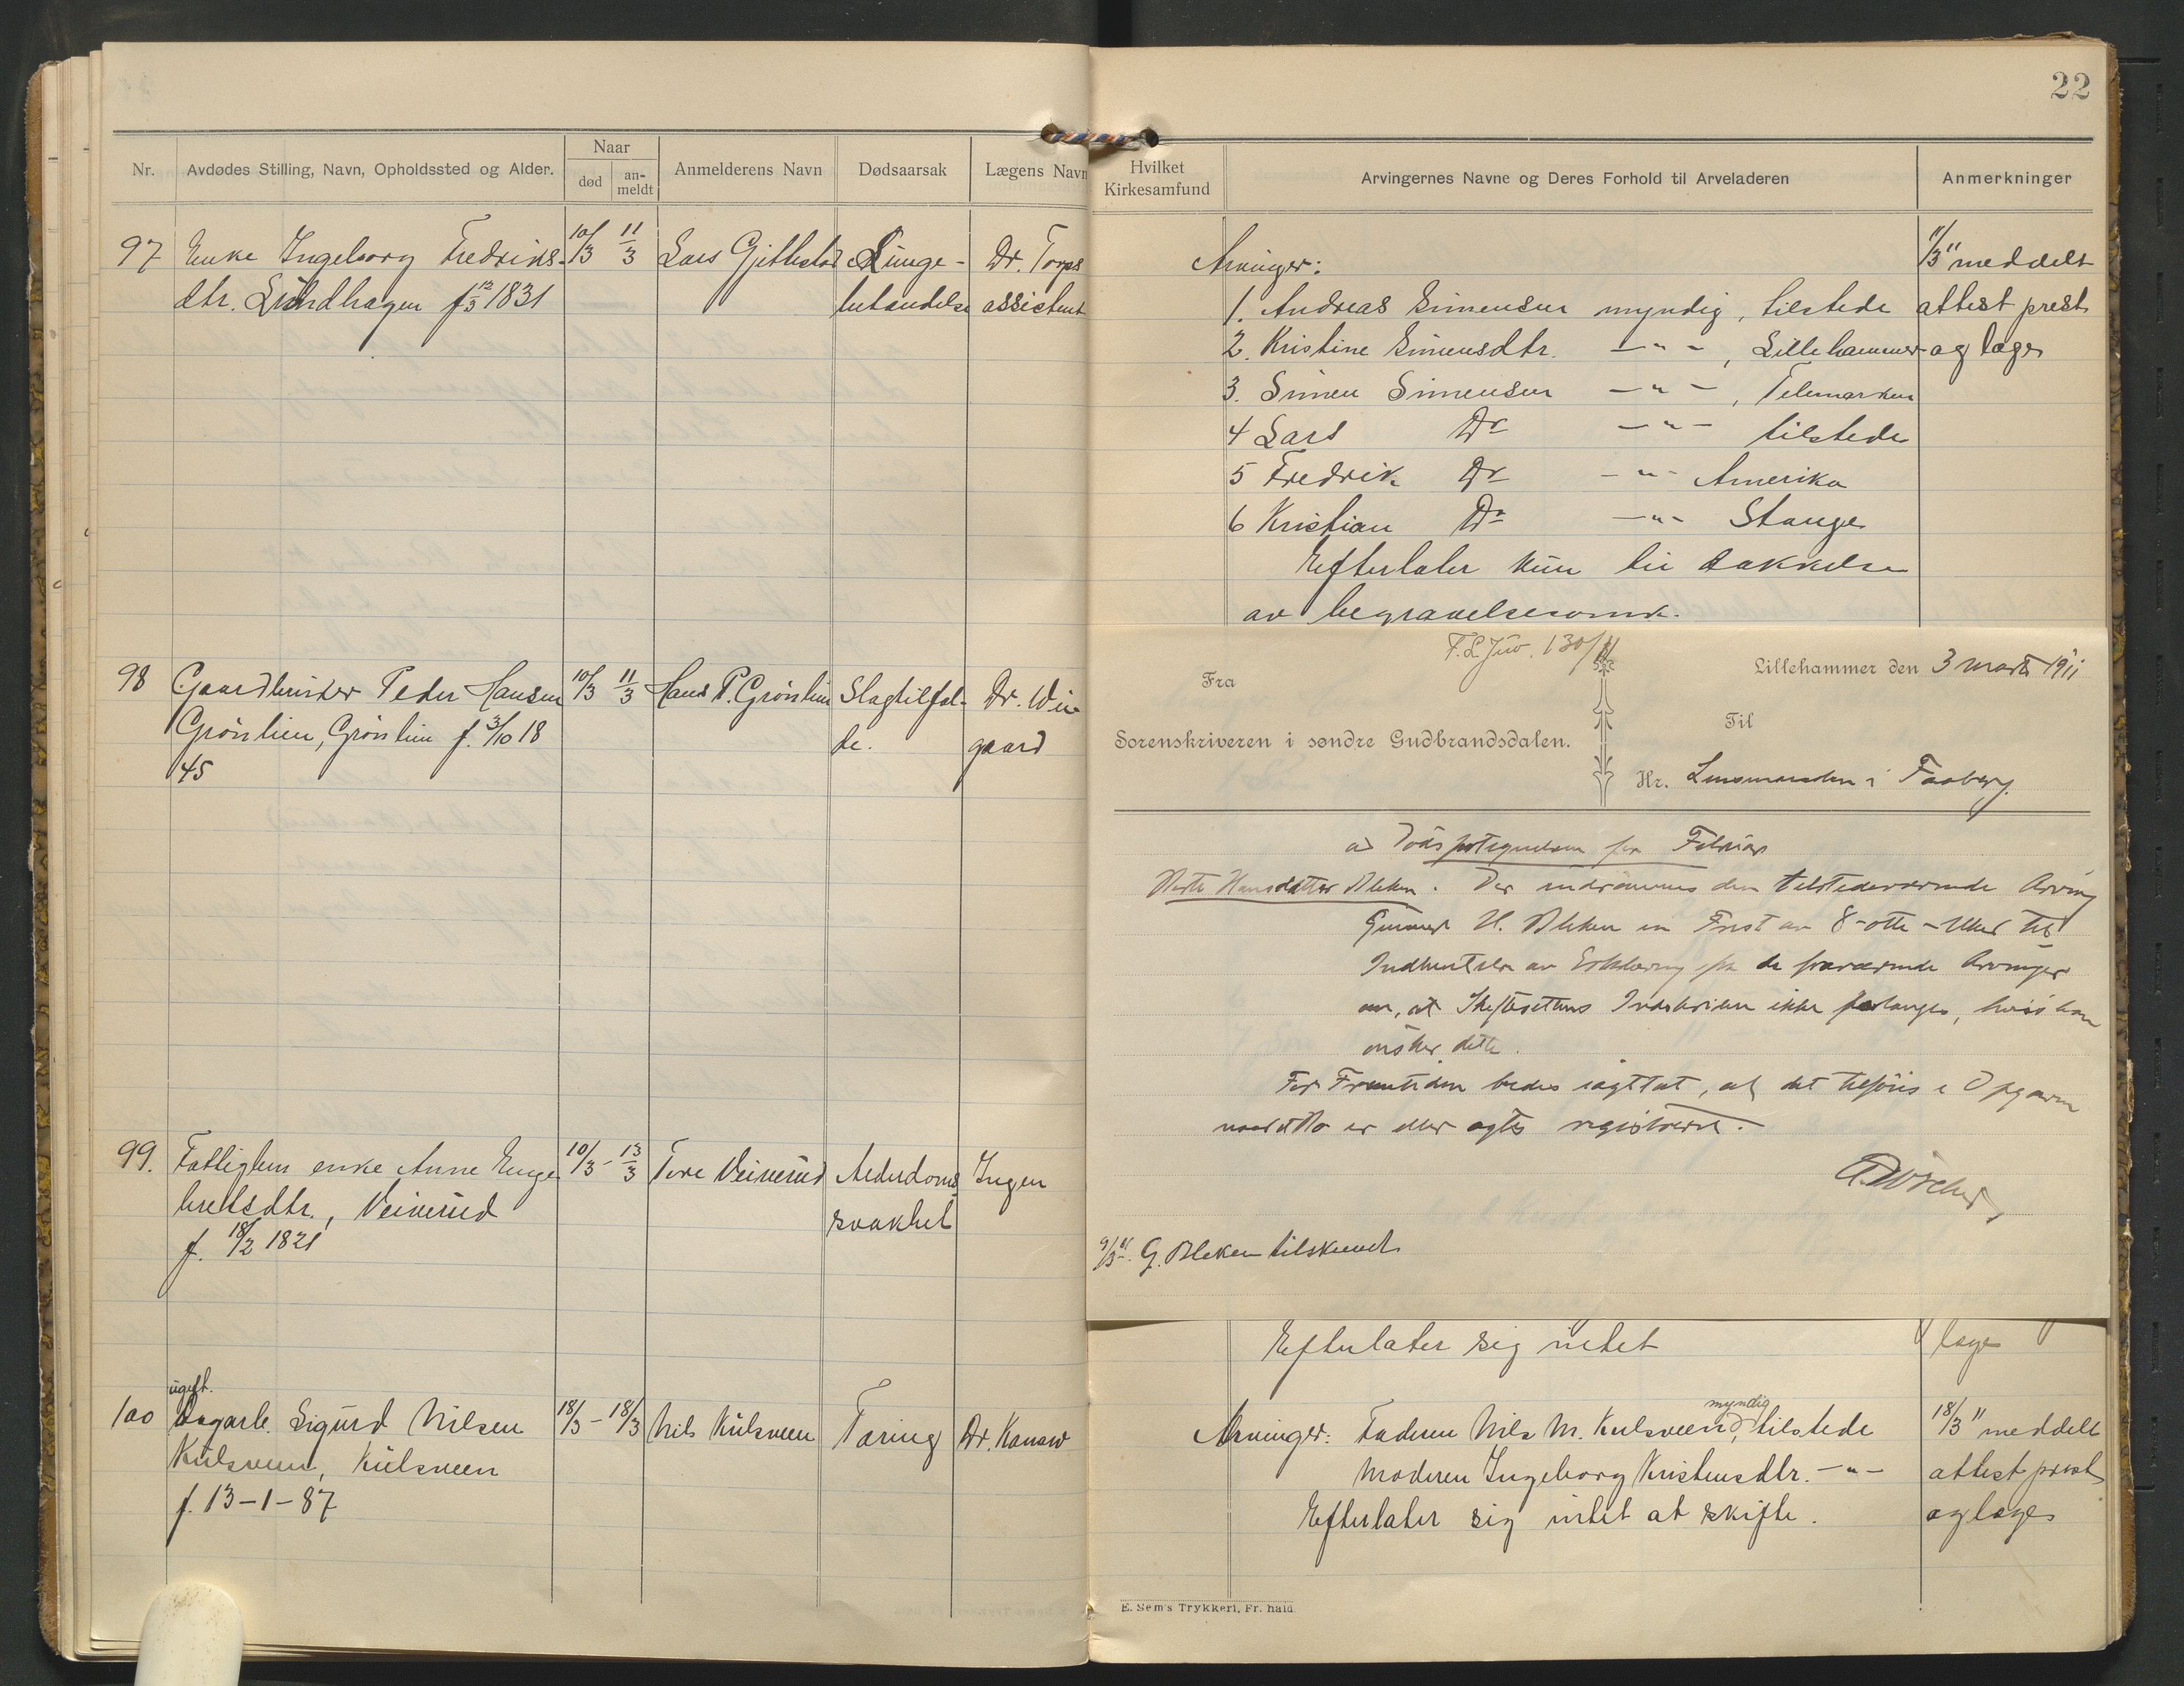 22
Nr.
Avdødes Stilling, Navn, Opholdssted og Alder.
Naar
død
an-
meldt
Anmelderens Navn
Dødsaarsak
Lægens Navn
Hvilket
Kirkesamfund
Arvingernes Navne og Deres Forhold til Arveladeren
Anmerkninger
97 Enke Ingeborg Fredriks- 10/3 11/3 Lars Lunge- Dr. Torps
dtr. Lundhagen f. 12/3 1831 assistent
Arvinger:
1. Andreas Simensen myndig, tilstede
2. Kristine Simensdtr. – " – , Lillehammer
3. Simen Simensen – " – , Telemarken
4 Lars Do – " – tilstede
5 Fredrik Do – " – Amerika
6 Kristian Do – " – Stange
Efterlater kun til dækkelse
av begravelsesomk.
11/3 " meddelt
attest prest
og læge
98 Gaardbruker Peder Hansen 10/3 11/3 Hans P. Grønlien Slagtilfæl- Dr. Wii-
Grønlien, Grønlien f. 3/10 18 de. gaard
45
99. Fattiglem enke Anne Enge- 10/3 - 13/3 Tore Veiverud Alderdoms Ingen
bretsdtr., Veiverud svakhet
f. 18/2 1821
ugift.
100 Dagarb. Sigurd Nilsen 18/3 - 18/3 Nils Kulsveen Tæring Dr. Kanow
Kulsveen, Kulsveen
f. 13-1-87
Fra
Sorenskriveren i søndre Gudbrandsdalen.
Lillehammer den 3 marts 1911
Til
Hr. Lensmanden i Faaberg.
ad Dødsfortegnelsen for Februar
Marte Hansdatter Bleken. Der indrømmes den tilstedeværende Arving
Gunnar H. Bleken en Frist av 8-otte-Uker til
Indhentelse av Erklæring fra de fraværende Arvinger
om, at Skifterettens Indskriden ikke forlanges, hvis han
ønsker dette.
For Fremtiden bedes iagttat, at det tilføies i Opgaven
naar Bo er eller agtes registreret.
9/3 11. G. Bleken tilskrevet
Efterlater sig intet læge
myndig
Arvinger: Faderen Nils M. Kulsveen, tilstede
Moderen Ingeborg Kristensdtr. – " –
Efterlater sig intet at skifte.
18/3 " meddelt
attest prest
og læge
E. Sem's Trykkeri, Fr.hald.